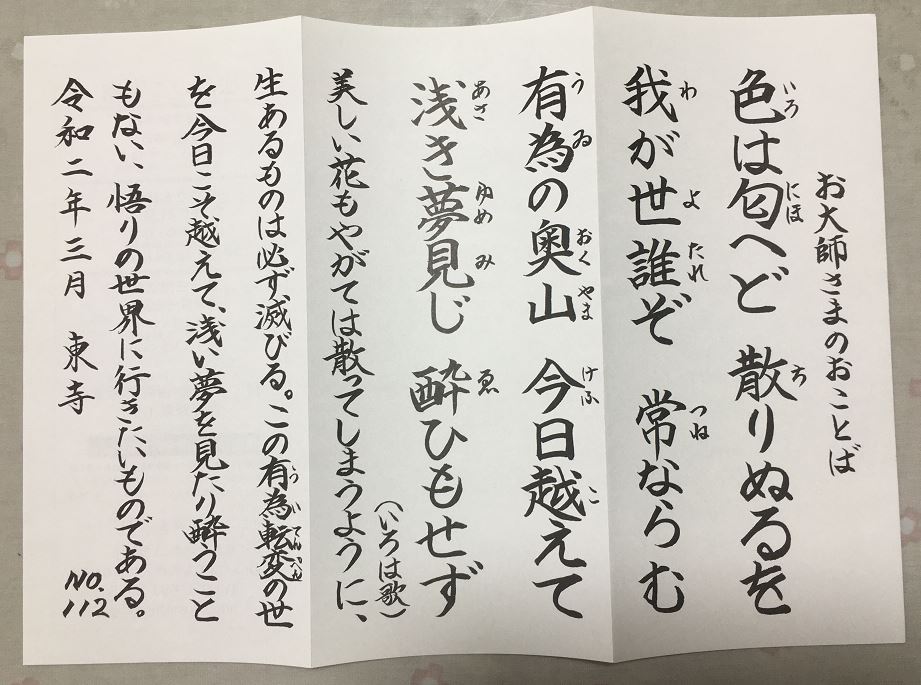 お大師さまのおことば
色は匂へど 散りぬるを
いろ にほ ち
我が世誰ぞ 常ならむ
わ よ たれ つね
有為の奥山 今日越えて
うゐ おく やま けふ こ
浅き夢見じ 酔ひもせず
あさ ゆめ み ゑ
(いろは歌)
美しい花もやがては散ってしまうように、
生あるものは必ず滅びる。この有為転変の世
うゐてんぺん
を今日こそ越えて、浅い夢を見たり酔うこと
もない、悟りの世界に行きたいものである。
令和二年三月 東寺
NO.112